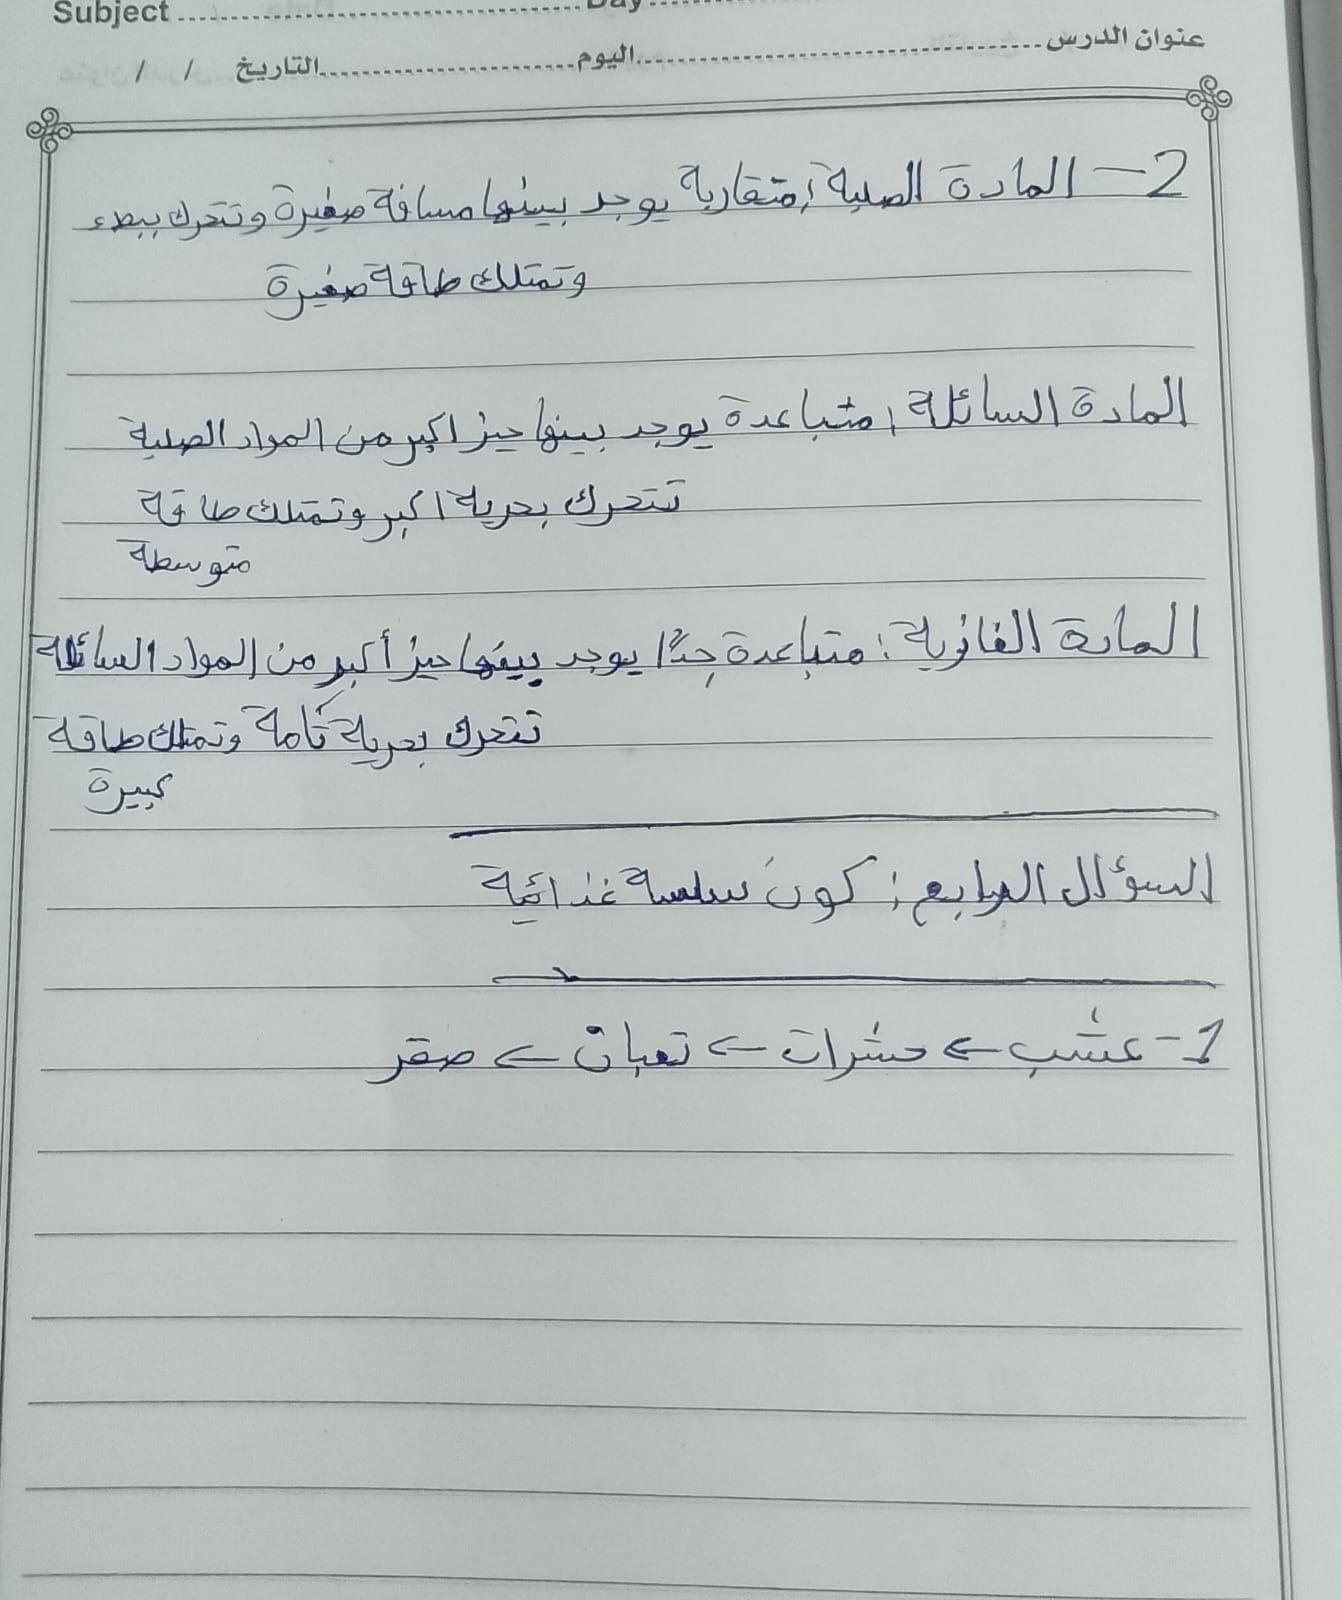 Subject ........................ Day
عنوان الدرس ........................ اليوم ........................ التاريخ / /
2- المادة الصلبة: متقاربة يوجد بينها مسافة صغيرة وتتحرك ببطء
وتمتلك طاقة صغيرة
المادة السائلة: متباعدة يوجد بينها حيز اكبر من المواد الصلبة
تتحرك بحرية اكبر وتمتلك طاقة
متوسطة
المادة الغازية: متباعدة جدًا يوجد بينها حيز أكبر من المواد السائلة
تتحرك بحرية تامة وتمتلك طاقة
كبيرة
السؤال الرابع: كون سلسة غذائية
1- عشب ← حشرات ← تعبان ← صقر